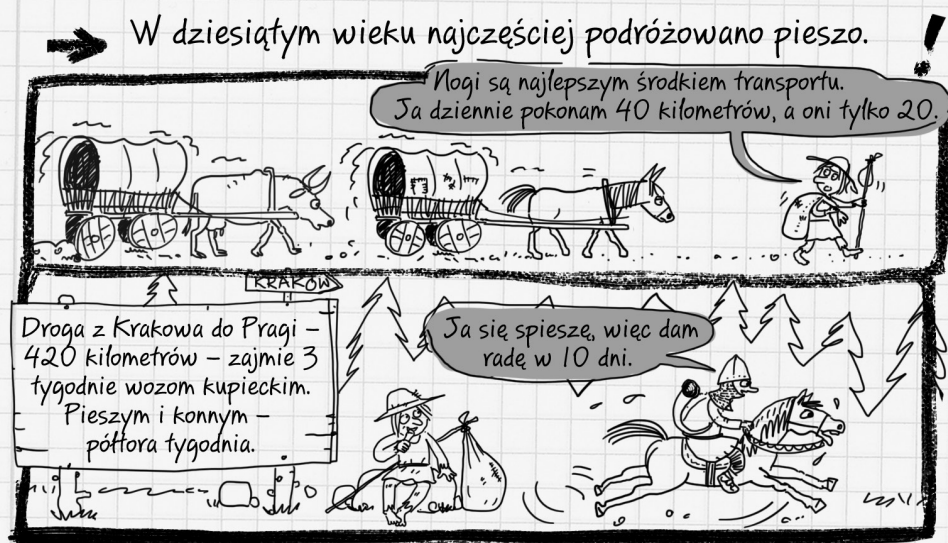 W dziesiątym wieku najczęściej podróżowano pieszo.
Nogi są najlepszym środkiem transportu.
Ja dziennie pokonam 40 kilometrów, a oni tylko 20.
KRAKÓW
Droga z Krakowa do Pragi –
420 kilometrów – zajmie 3
tygodnie wozom kupieckim.
Pieszym i konnym –
półtora tygodnia.
Ja się spieszę, więc dam
radę w 10 dni.